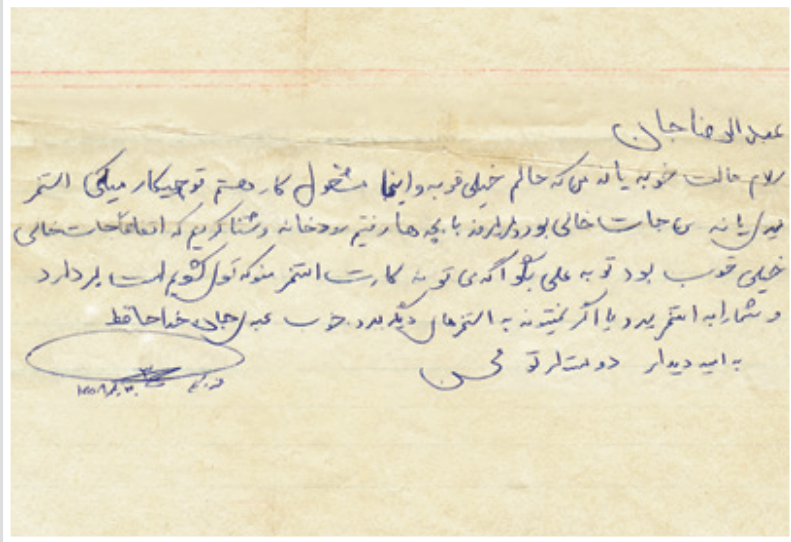 عبدالرضا جان
سلام حالت خوبه یا نه من که حالم خیلی خوبه و اینجا مشغول کار هستم تو چیکار میکنی استخر
میری یا نه من جات خالی بود دیروز با بچه ها رفتیم رودخانه و شنا کردیم که اتفاقاً جات خالی
خیلی خوب بود تو به علی بگو اگه می تونه کارت استخر منو که تول کشویم است بردارد
و شما را به استخر ببرد یا اگر نمیتونه به استخرهای دیگر ببرد. خوب عبدل جان خداحافظ
به امید دیدار دوستدار تو محسن